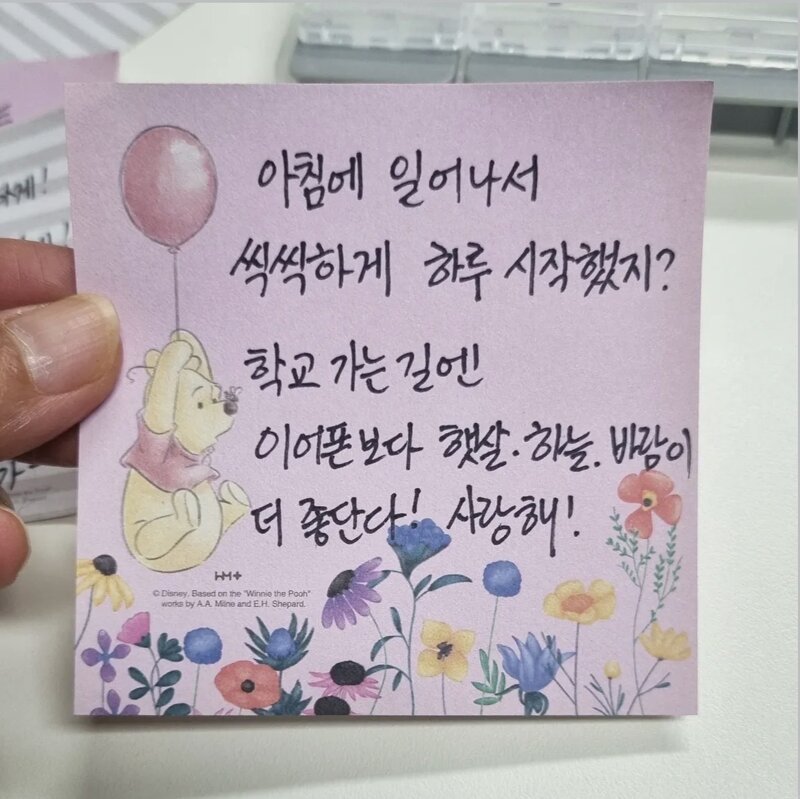 아침에 일어나서
씩씩하게 하루 시작했지?
학교 가는 길엔!
이어폰보다 햇살·하늘·바람이
더 좋단다! 사랑해!
© Disney. Based on the "Winnie the Pooh"
works by A.A. Milne and E.H. Shepard.